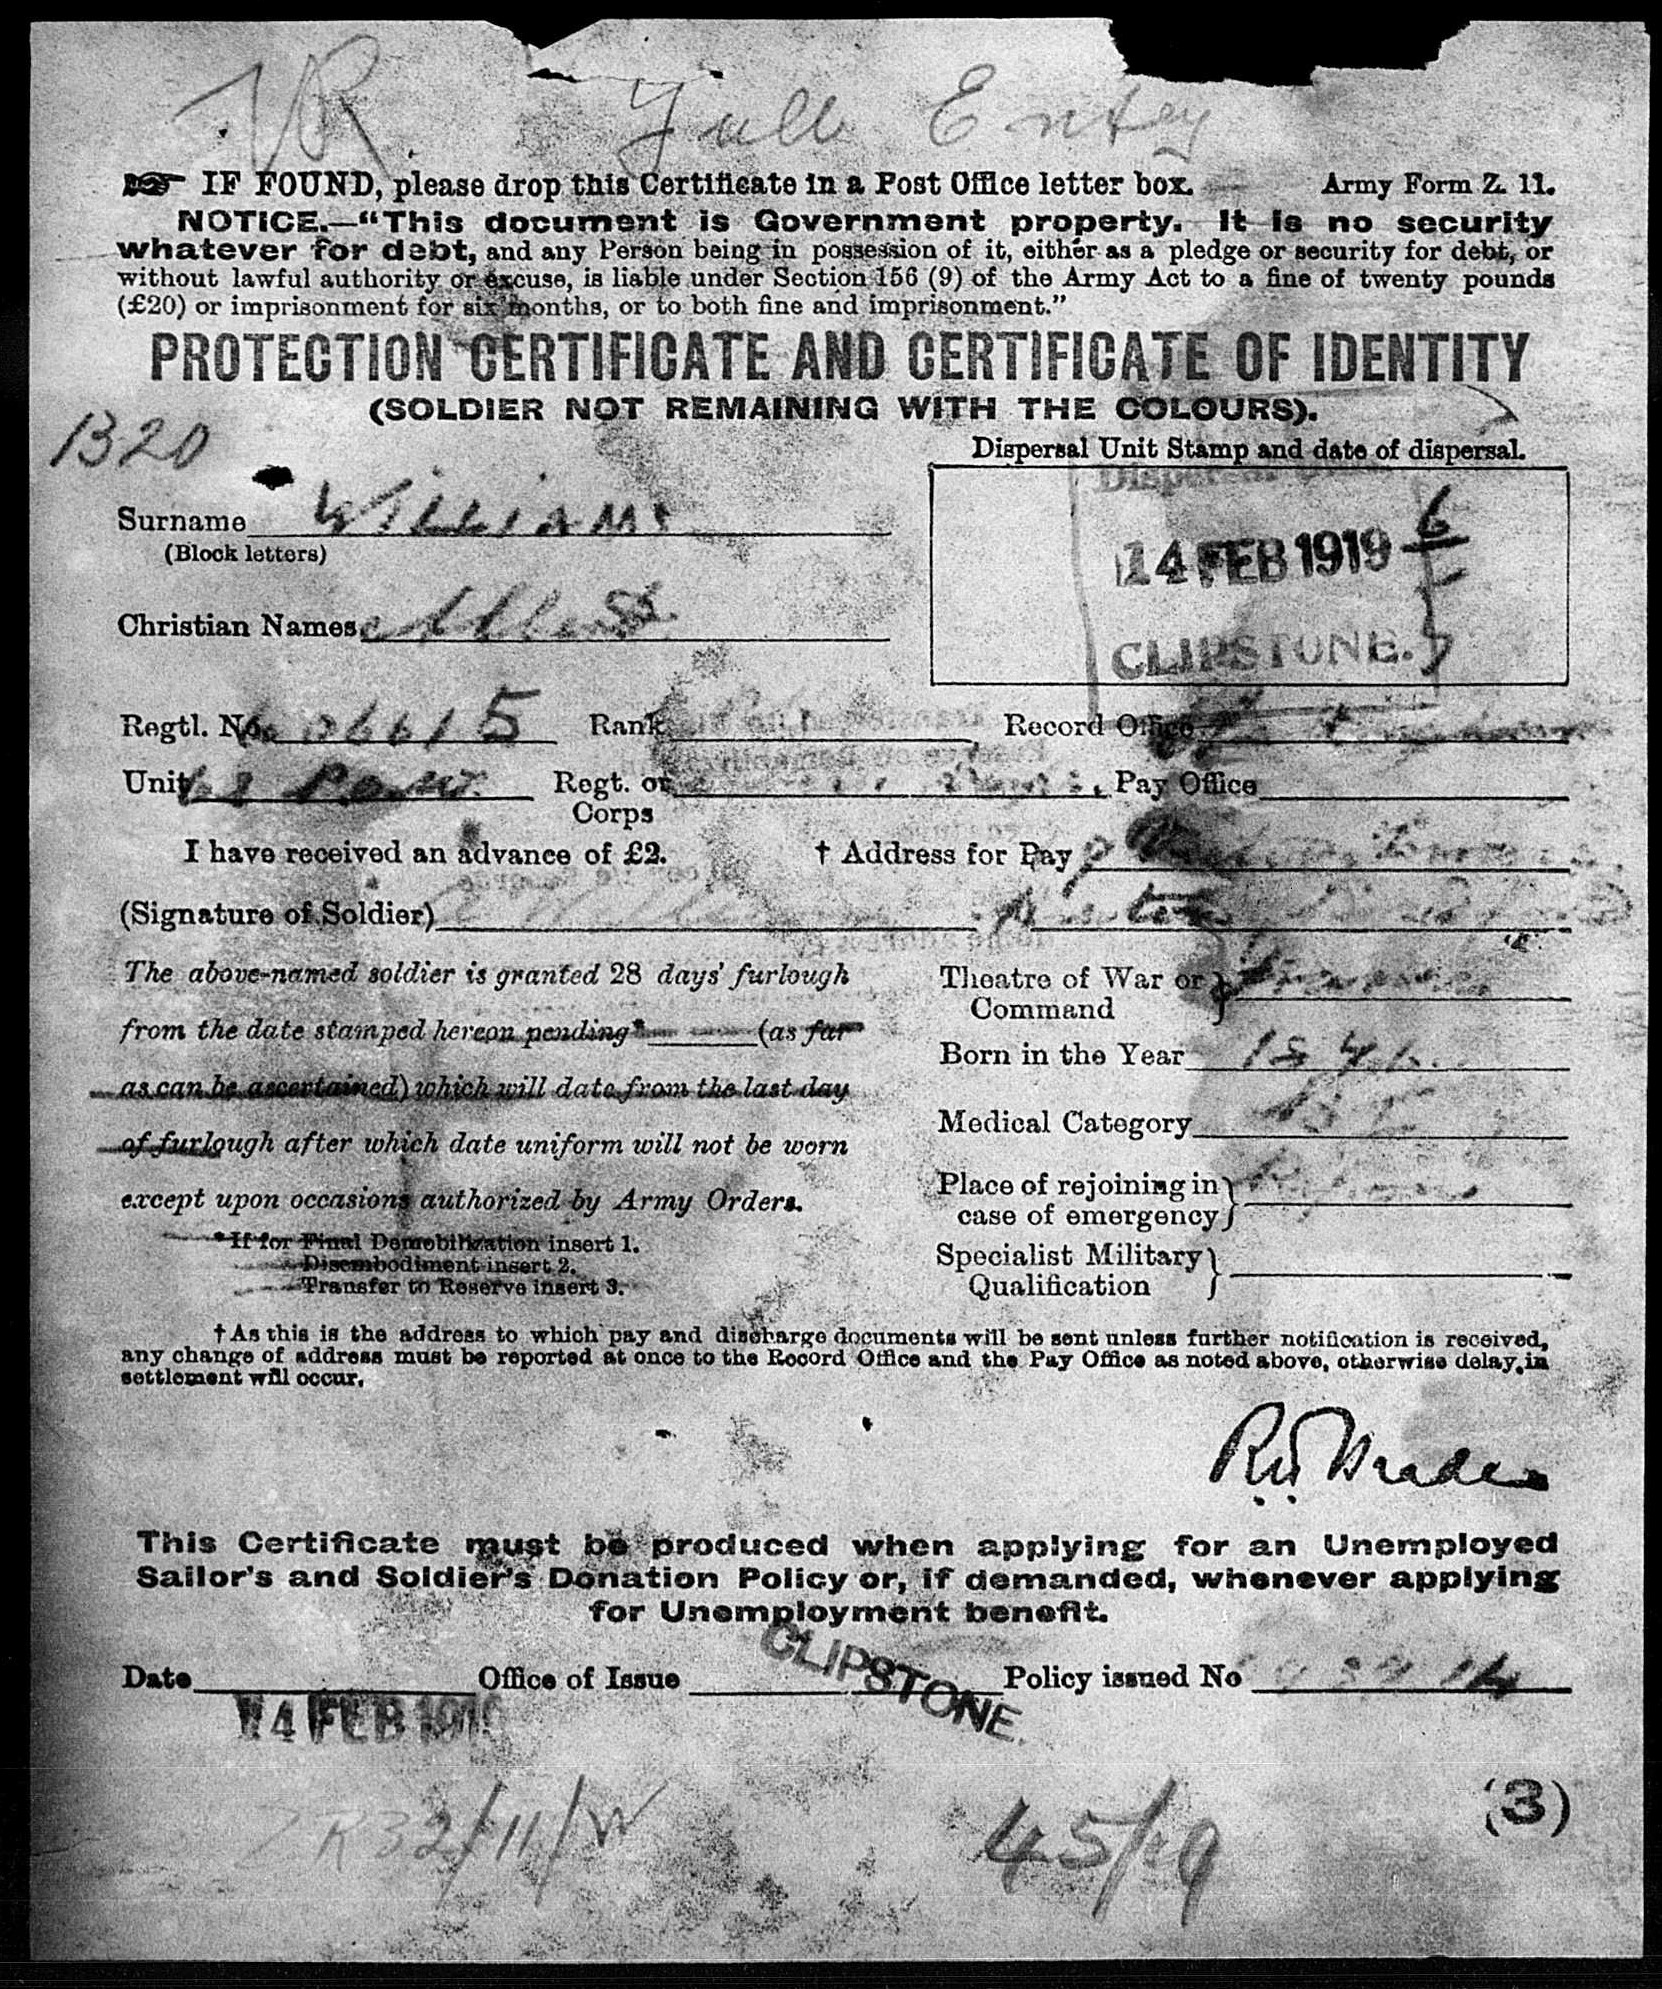 Full Entry
IF FOUND, please drop this Certificate in a Post Office letter box. Army Form Z. 11.
NOTICE.—"This document is Government property. It is no security
whatever for debt, and any Person being in possession of it, either as a pledge or security for debt, or
without lawful authority or excuse, is liable under Section 156 (9) of the Army Act to a fine of twenty pounds
(£20) or imprisonment for six months, or to both fine and imprisonment."
PROTECTION CERTIFICATE AND CERTIFICATE OF IDENTITY
(SOLDIER NOT REMAINING WITH THE COLOURS).
1320
Dispersal Unit Stamp and date of dispersal.
Surname WILLIAMS
(Block letters)
14 FEB 1919
CLIPSTONE.
Christian Names Albert
Regtl. No. Rank Record Office
Unit Regt. or Corps Pay Office
I have received an advance of £2. † Address for Pay
(Signature of Soldier)
The above-named soldier is granted 28 days' furlough
from the date stamped hereon pending* (as far
as can be ascertained) which will date from the last day
of furlough after which date uniform will not be worn
except upon occasions authorized by Army Orders.
*If for Final Demobilization insert 1.
Disembodiment insert 2.
Transfer to Reserve insert 3.
Theatre of War or Command France
Born in the Year
Medical Category
Place of rejoining in case of emergency
Specialist Military Qualification
† As this is the address to which pay and discharge documents will be sent unless further notification is received,
any change of address must be reported at once to the Record Office and the Pay Office as noted above, otherwise delay in
settlement will occur.
This Certificate must be produced when applying for an Unemployed
Sailor's and Soldier's Donation Policy or, if demanded, whenever applying
for Unemployment benefit.
Date 14 FEB 1919 Office of Issue CLIPSTONE. Policy issued No
ZR32/11/W
45/19
(3)